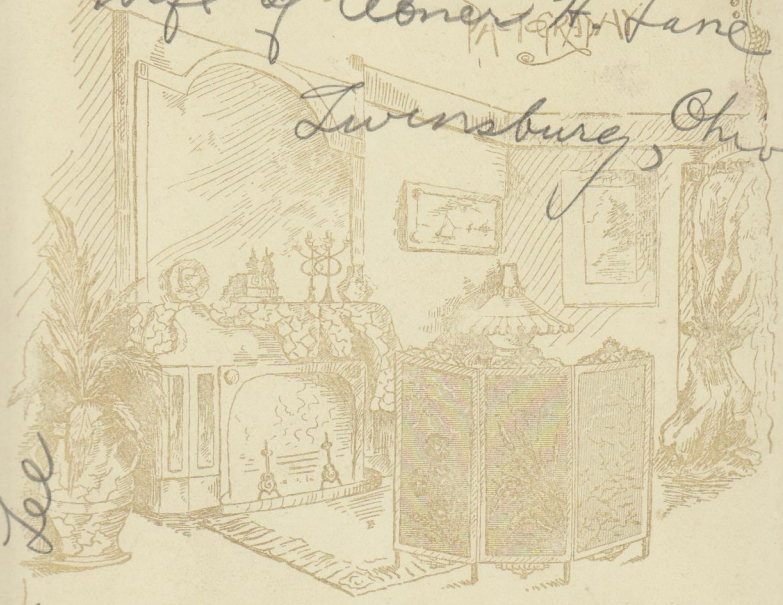 Wife of Abner H. Lane
Twinsburg, Ohio
Lee